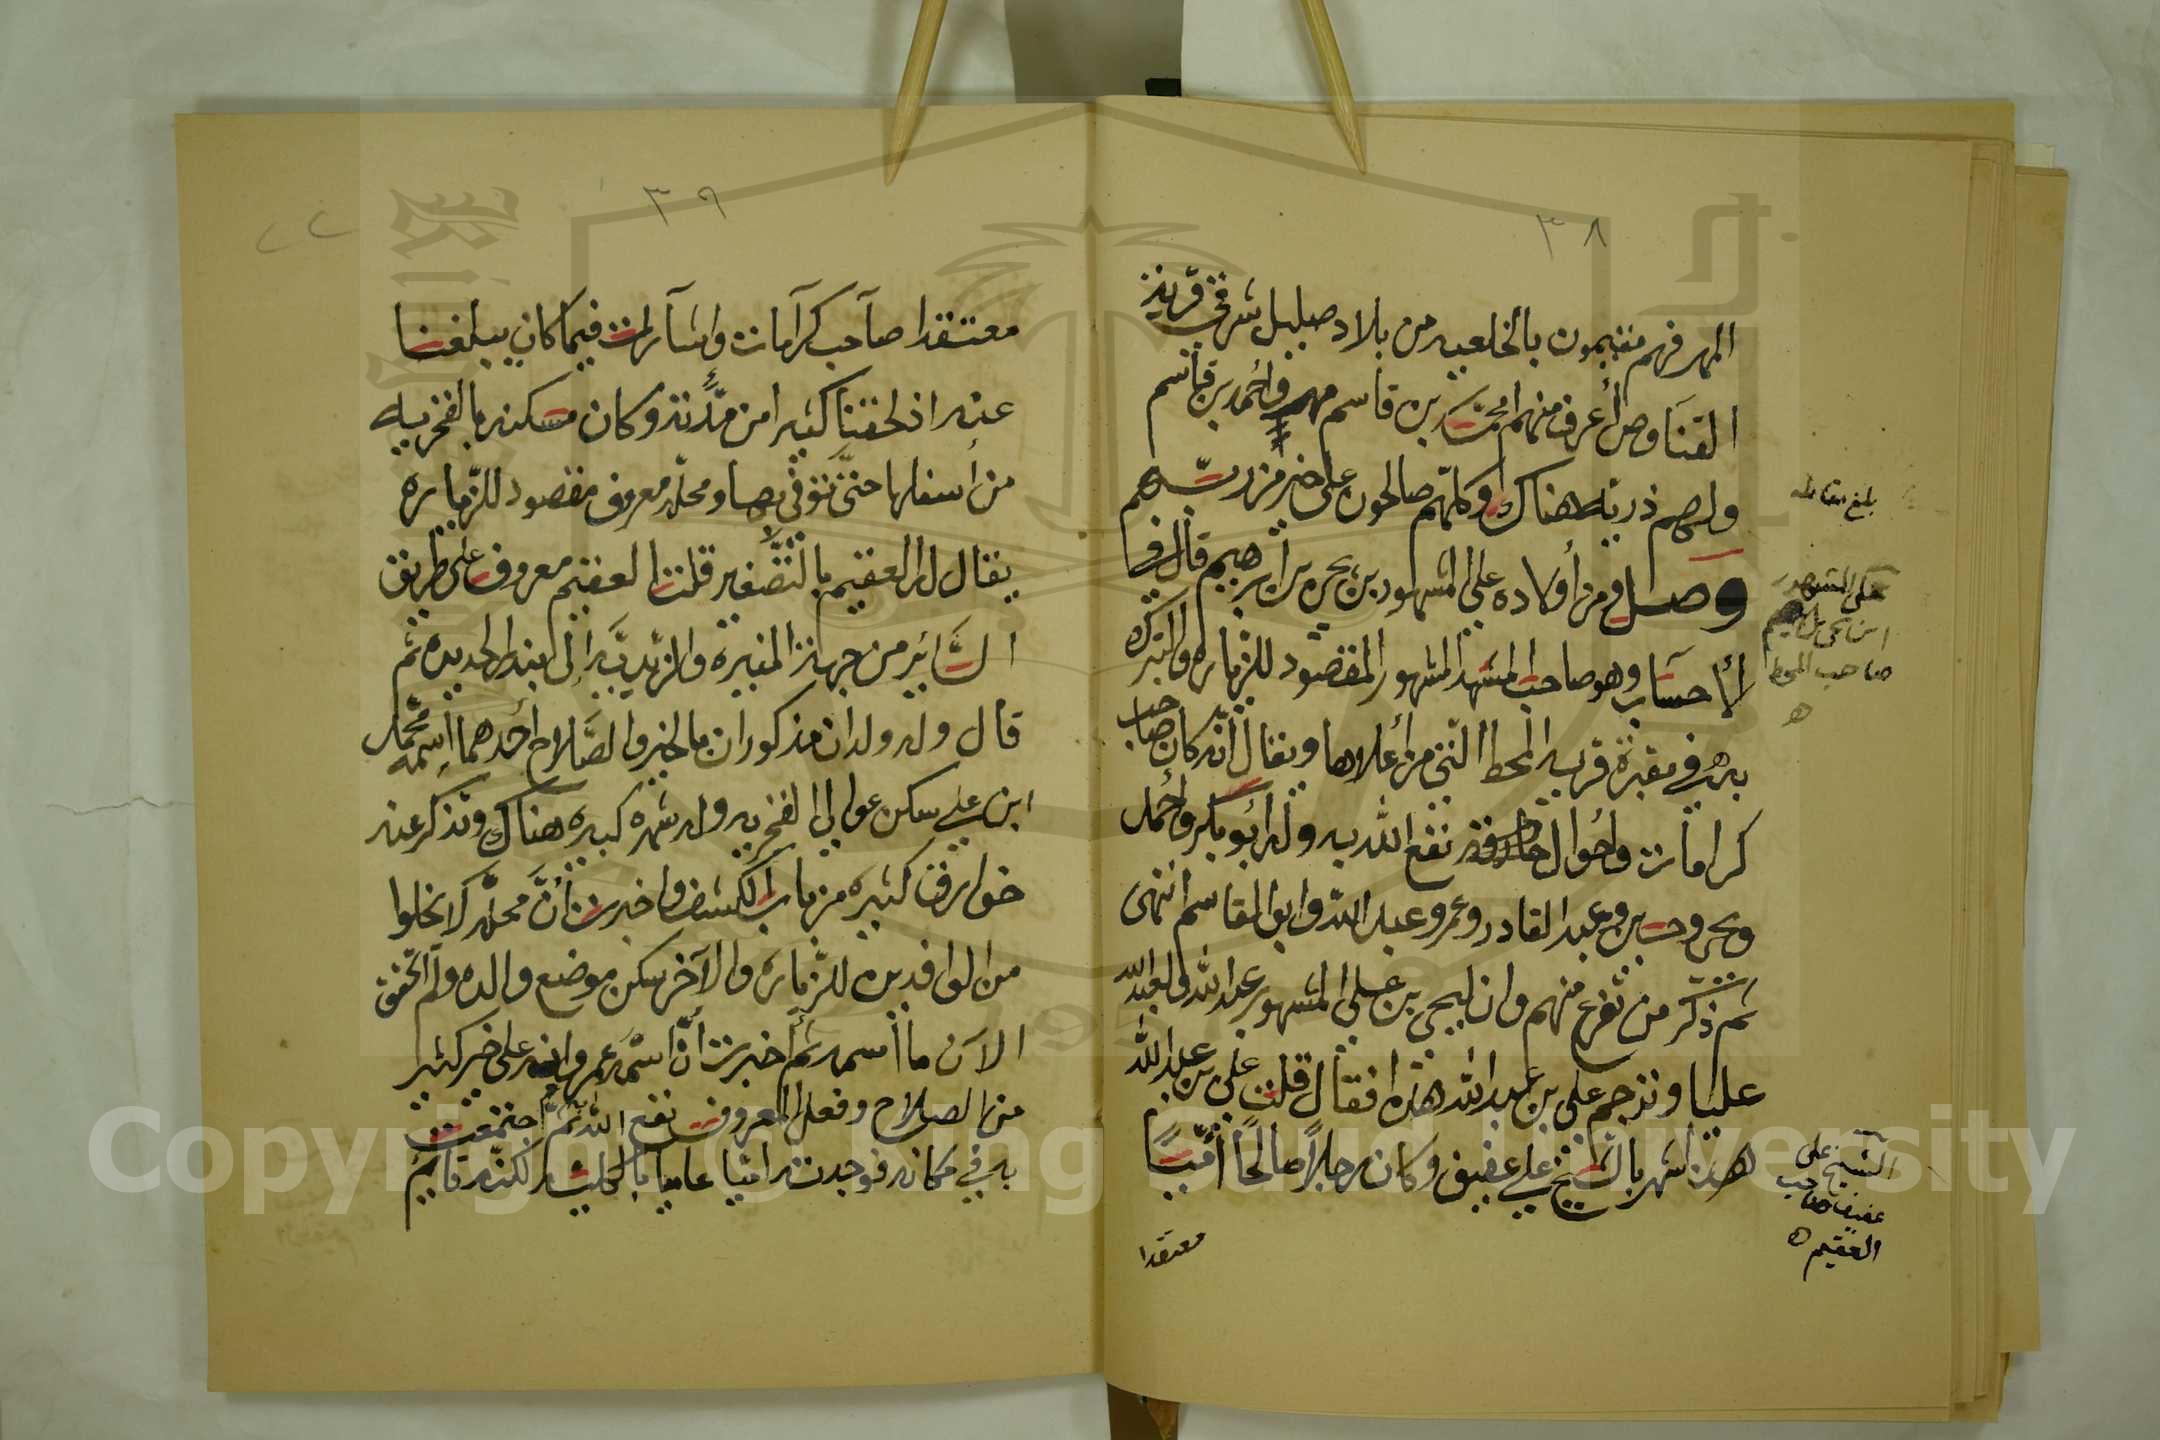 ٣٨
المهر فهم مقيمون بالخلعيه من بلاد صليل شرقي قرية
القناوص أعرف منهم محمد بن قاسم مهر وأحمد بن قاسم
ولهم ذريه هناك وكلهم صالحون على خير من ربهم
وصل ومن أولاده علي المشهور بن يحيى بن ابرهيم قال في
الأحساب وهو صاحب المشهد المشهور المقصود للزياره والتبرك
به في مقبرة قريه المحط التي من أعلاها ويقال أنه كان صاحب
كرامات وأحوال خارقة نفع الله به وله أبو بكر وأحمد
ويحيى وحسين وعبد القادر وعمر وعبد الله وابو القاسم انتهى
ثم ذكر من تفرع منهم وان ليحيى بن علي المشهور عبد الله ولعبد الله
عليا وترجم علي بن عبد الله هذا فقال قلت علي بن عبد الله
هذا اشهر بالشيخ علي عفيق وكان رجلاً صالحًا أميًّا
معتقدا
بلغ مقابله
علي المشهور
ابن يحيى بن ابرهيم
صاحب المحط
ه
الشيخ علي
عفيق صاحب
العقيم ه
٣٩
٢٢
معتقدا صاحب كرامات واشارات فيما كان يبلغنا
عنه اذ لحقنا كثيرا من مدّته وكان مسكنه بالفخريه
من أسفلها حتى توفي بها ومحله معروف مقصود للزياره
يقال له العقيم بالتصغير قلت العقيم معروف على طريق
السَّائر من جهة المنيره والزيديَّه إلى بندر الحديده ثم
قال وله ولدان مذكوران بالخير والصَّلاح أحدهما اسمه محمد
ابن علي سكن عوالي الفخريه وله شهره كبيره هناك وتذكر عنه
خوارق كثيره من باب الكشف واخبرت أنَّ محله لا يخلوا
من الوافدين للزياره والآخر سكن موضع والده ولم اتحقق
الآن ما اسمه ثم أخبرت أنَّ اسمه عمر وانه على خير كثير
من الصلاح وفعل المعروف نفع الله به ثم اجتمعت
به في مكانه فوجدته اميا عاميا بالكليه لكنه قايم